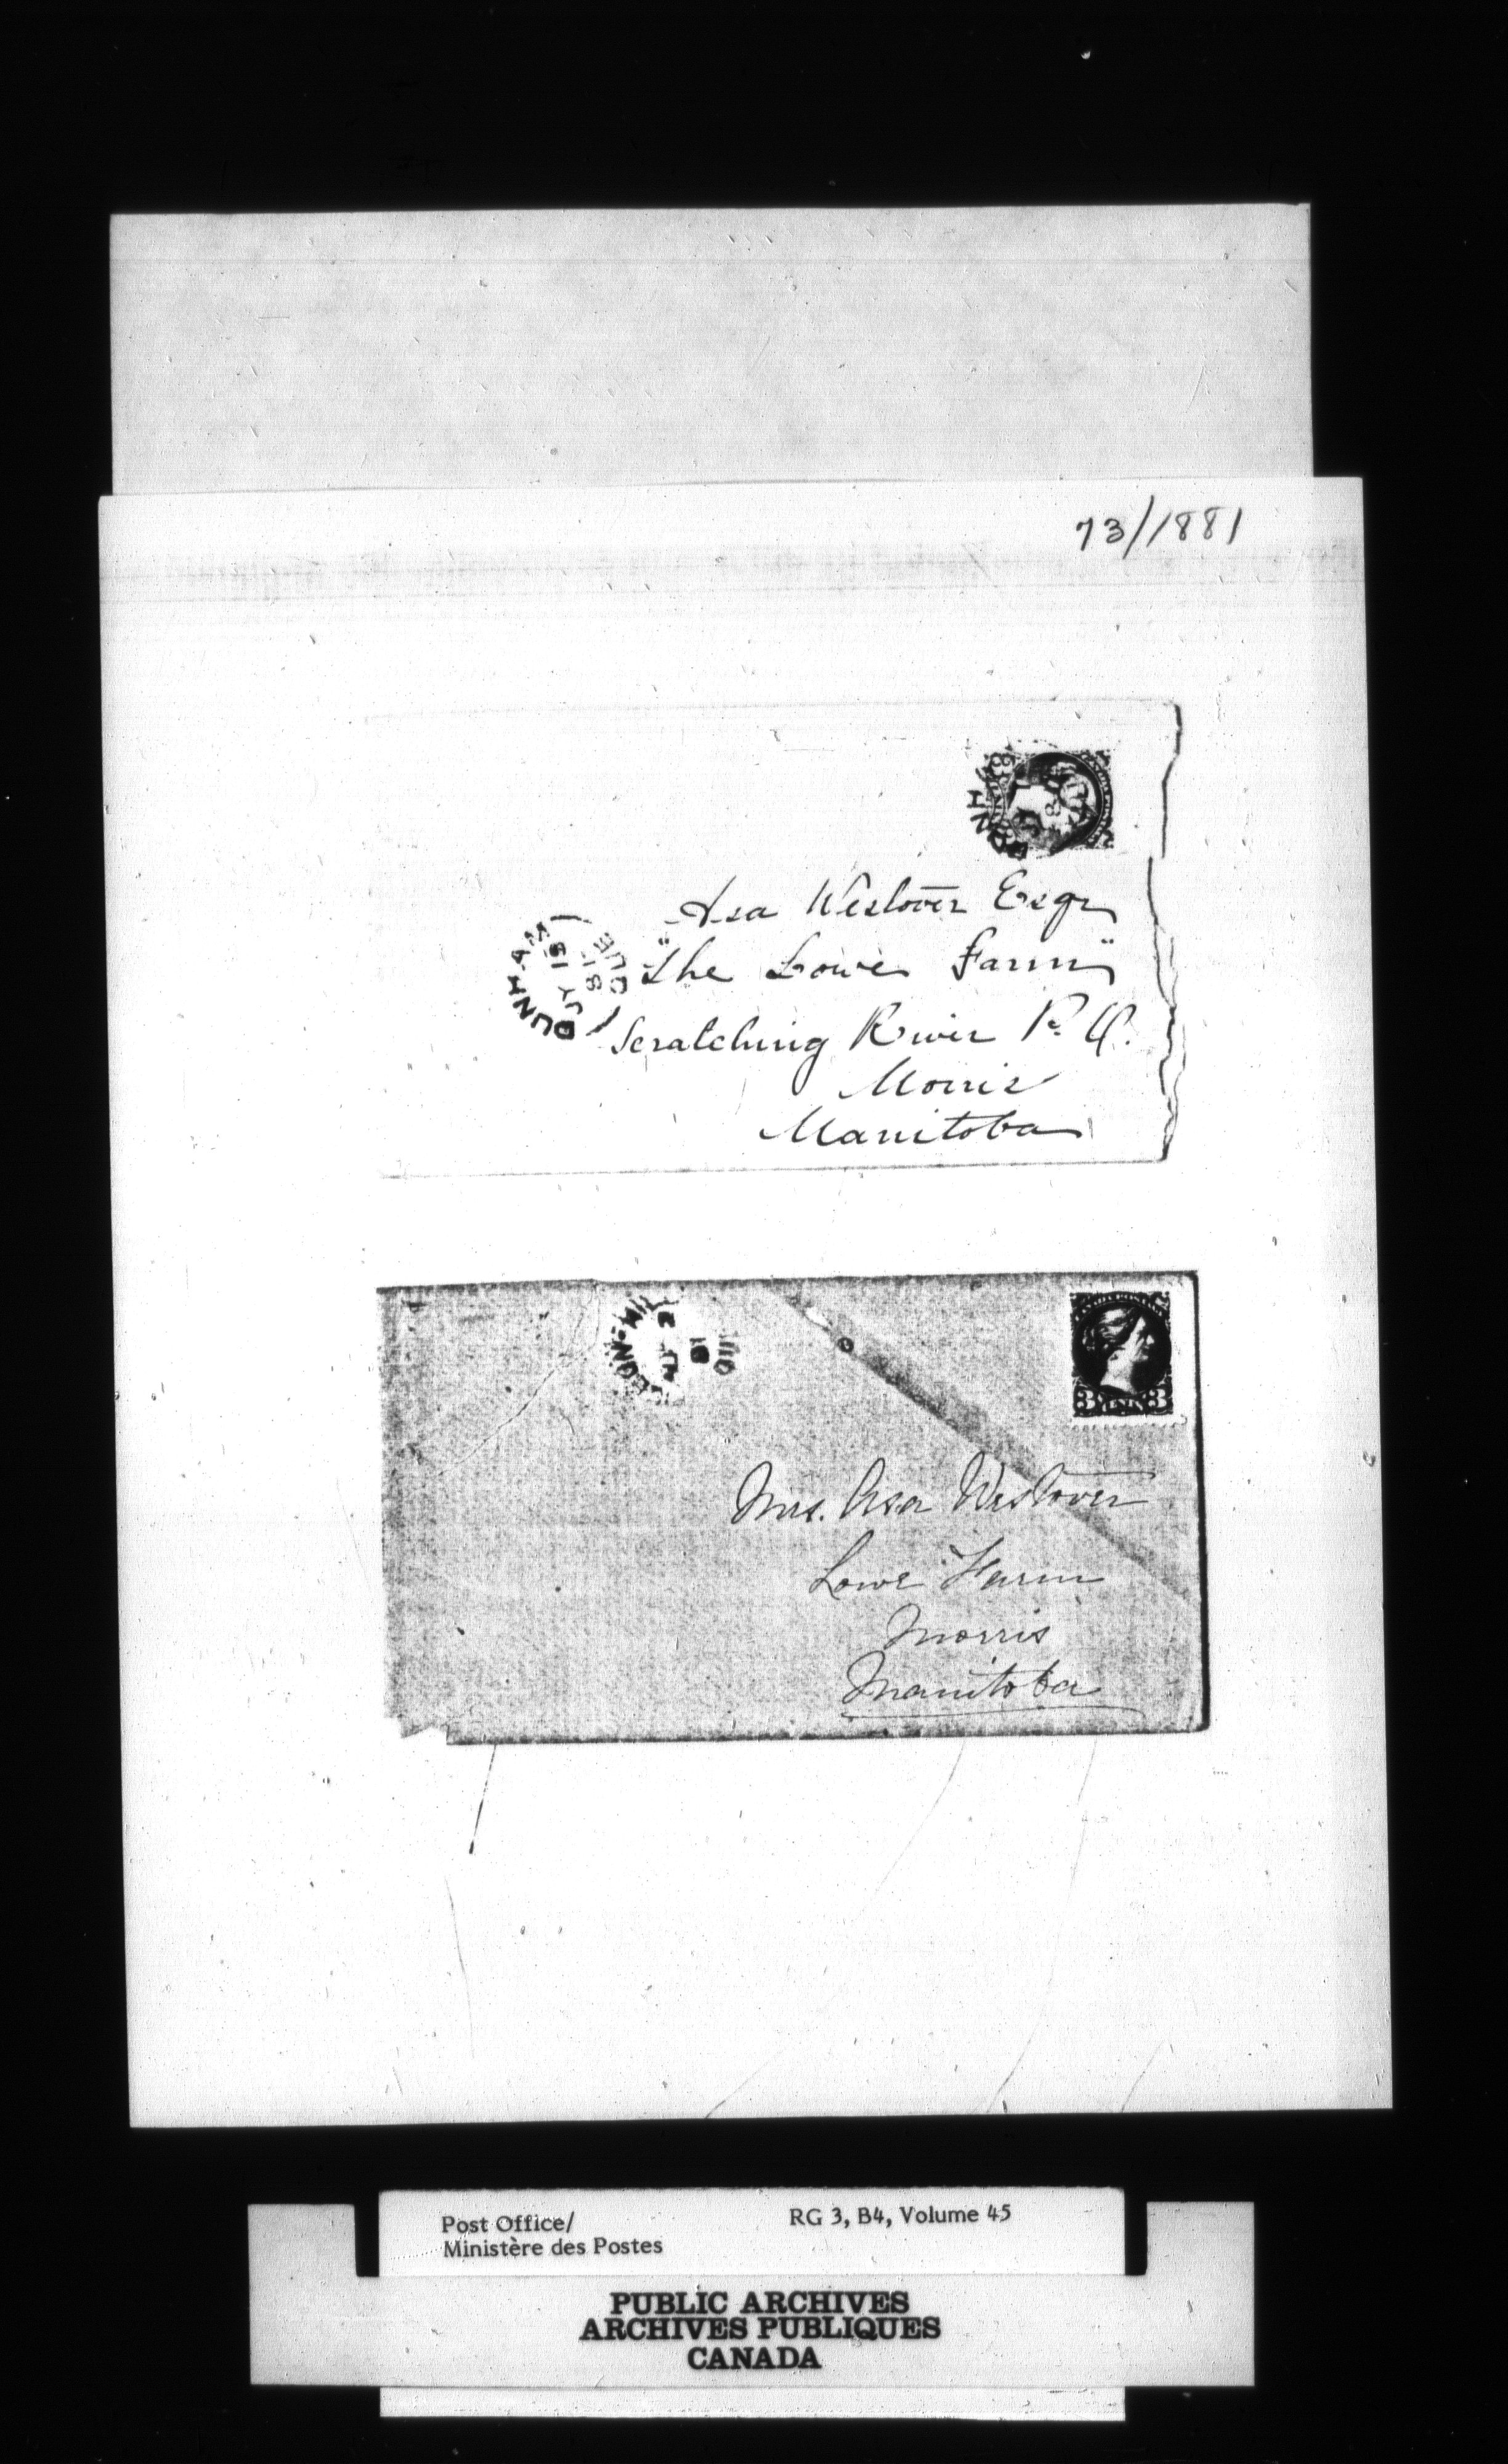 73/1881
Asa Westover Esqr
"The Lowe Farm"
Scratching River P.O.
Morris
Manitoba
DUNHAM
JY 15
81
QUE
Mrs. Asa Westover
Lowe Farm
Morris
Manitoba
Post Office/
Ministère des Postes
RG 3, B4, Volume 45
PUBLIC ARCHIVES
ARCHIVES PUBLIQUES
CANADA